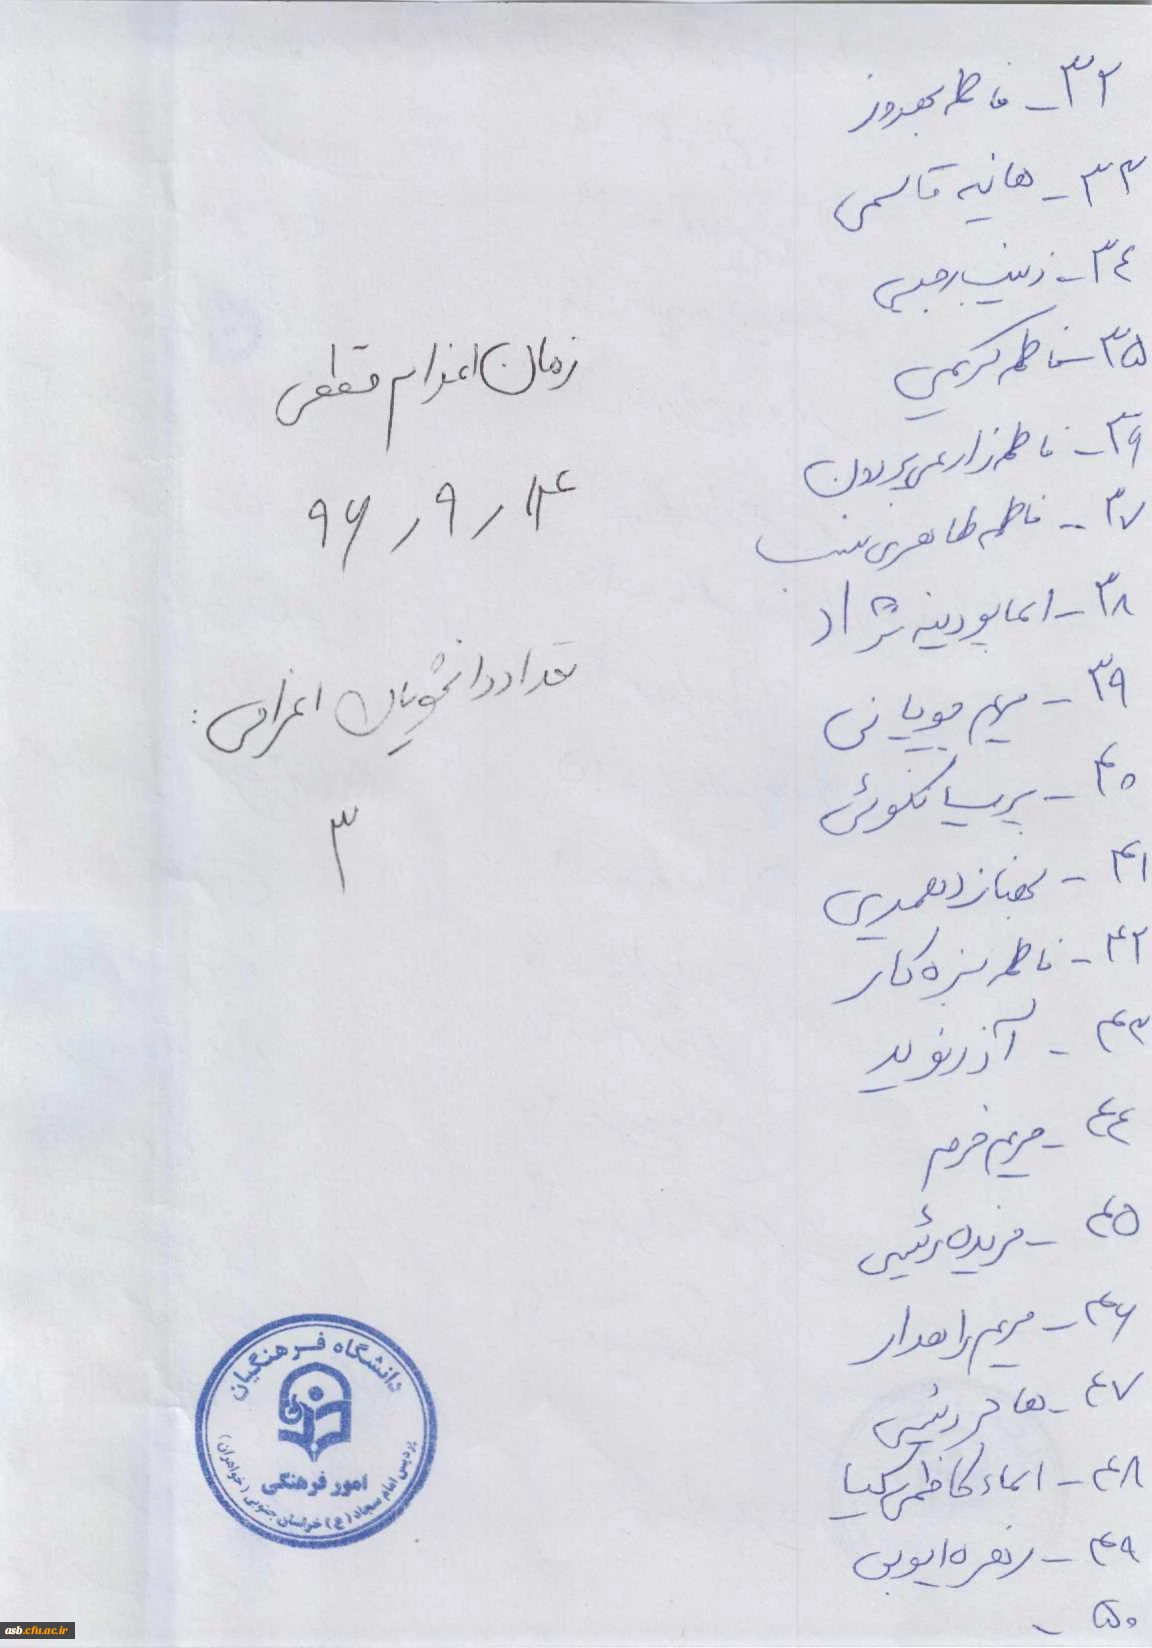 ۳۲- فاطمه بهروز
۳۳- هانیه قاسمی
۳٤- زینب رجبی
۳۵- فاطمه کریمی
۳۶- فاطمه زارعی بربون
۳۷- فاطمه طاهری نسب
۳۸- اسما پودینه نژاد
۳۹- مریم جوپانی
۴۰- پریسا نکوئی
۴۱- بهناز دهمردی
۴۲- فاطمه سبزه کار
۴۳- آذر نوید
٤٤- مریم خرم
۴۵- فریده رئیسی
۴۶- مریم راهدار
٤۷- هاجر رئیسی
٤۸- اسماء کاظمی کیا
۴۹- زهره ایوبی
۵۰-
زمان اعزام قطعی
۱۴ ر ۹ ر ۹۶
تعداد دانشجویان اعزامی :
۳
دانشگاه فرهنگیان
امور فرهنگی
پردیس امام سجاد (ع) خراسان جنوبی (خواهران)
asb.cfu.ac.ir